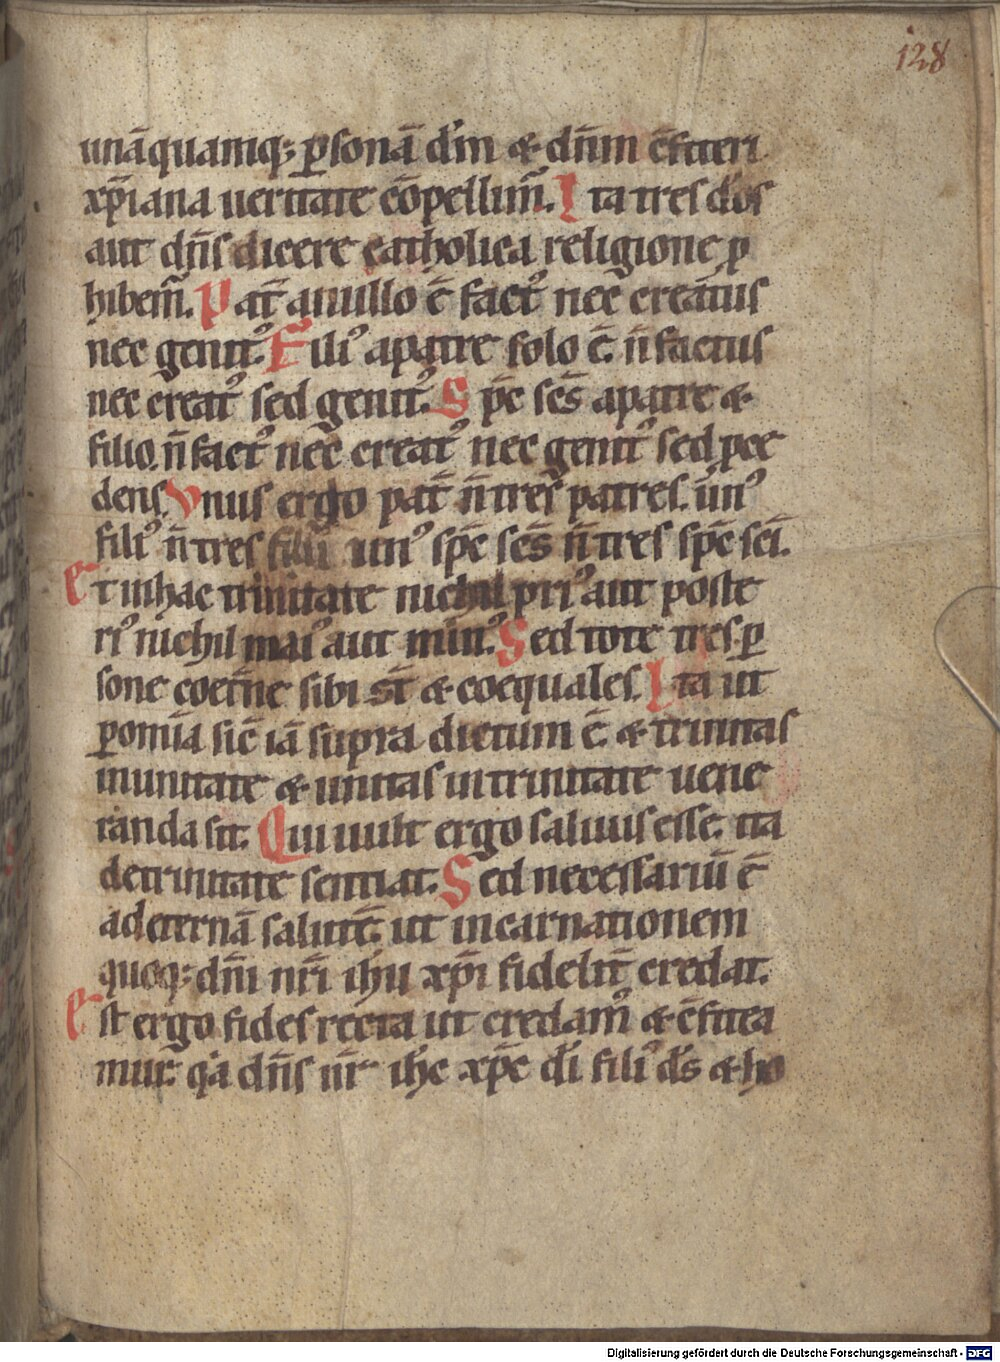 128
unā quamq; ꝑsonā dm̄ & dn̄m ɔ̄fiteri
xp̄iana ueritate cōpellim̄. I ta tres dōs
aut dn̄s dicere catholica religione ꝓ
hibem̄. P at̄ a nullo ē fact᾽ nec creatus
nec genit᾽. F ili᾽ a patre solo ē. n̄ factus
nec creat᾽ sed genit᾽. S pc̄ scs̄ a patre &
filio. n̄ fact᾽ nec creat᾽ nec genit᾽ sed ꝓce
dens. V nus ergo pat̄ n̄ tres patres. un᾽
fili᾽ n̄ tres filii un᾽ spc̄ scs̄ n̄ tres spc̄ sci̅.
E t in hac trinitate nichil pri᾽ aut poste
ri᾽ nichil mai᾽ aut min᾽. S ed tote tres ꝑ
sone coet̄ne sibi st̄ & coequales. I ta ut
ꝑ omīa sic̄ iā supra dictum ē. & trinitas
in unitate & unitas in trinitate uene
randa sit. Q ui uult ergo saluus esse. ita
de trinitate sentiat. S ed necessariū ē
ad eternā salutē. ut incarnationem
quoq; dn̄i nr̄i ihu̅ xp̄i fidelit̄ credat.
E st ergo fides recta ut credam᾽ & ɔ̄fitea
mur. qa dn̄s nr̄ ihc̄ xp̄c di̅ fili᾽ ds̄ & ho
Digitalisierung gefördert durch die Deutsche Forschungsgemeinschaft - DFG